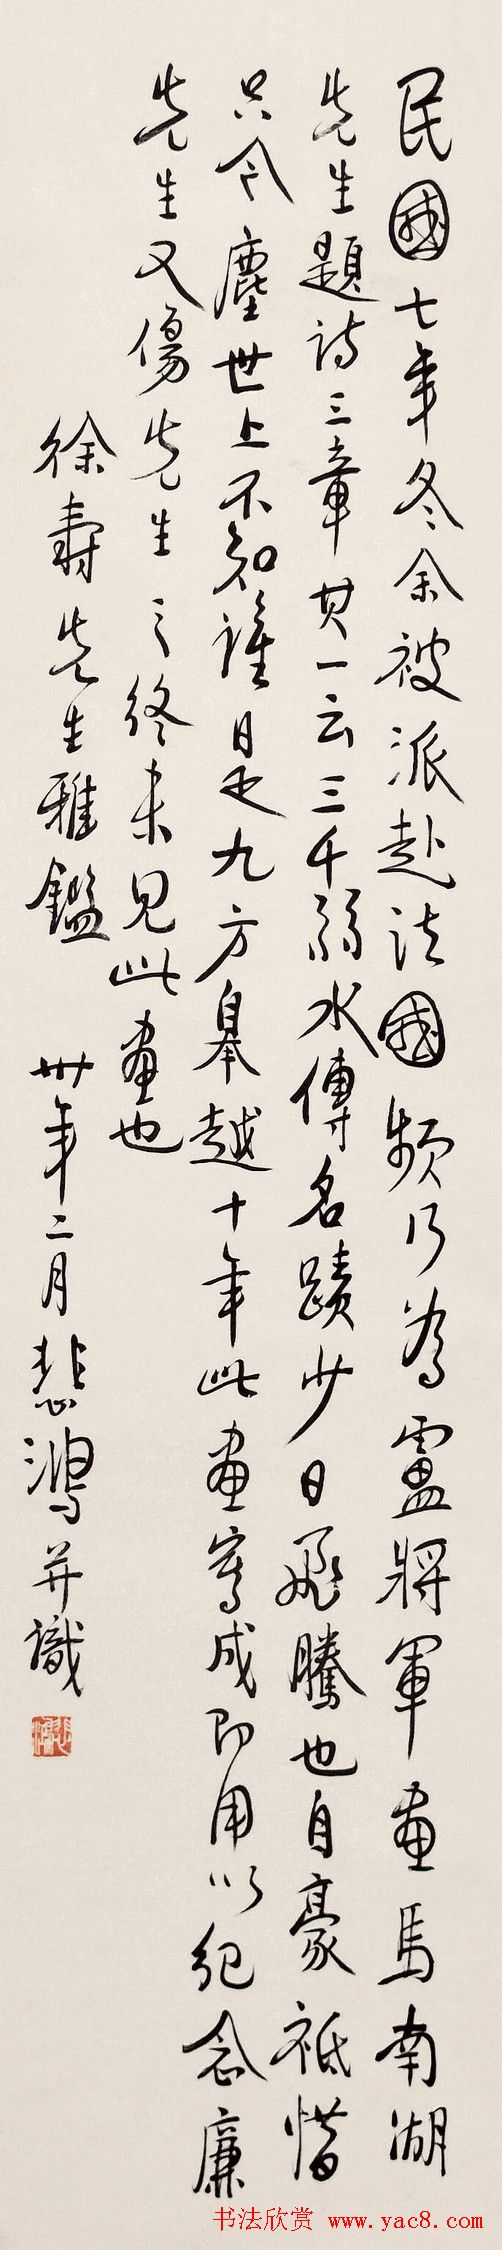 民國七年冬余被派赴法國頻行為盧將軍畫馬南湖
先生題詩三章其一云三千弱水傳名蹟少日飛騰也自豪祗惜
只今塵世上不知誰是九方皋越十年此畫寫成即用以紀念廉
先生又傷先生之終未見此畫也
徐壽先生雅鑑 卅年二月悲鴻并識
悲鴻
书法欣赏:www.yac8.com